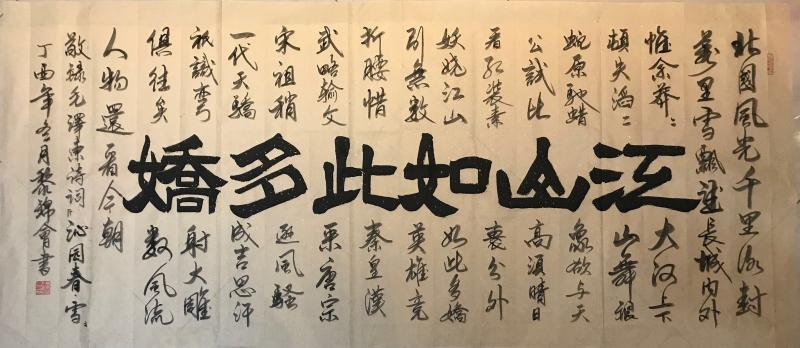 江山如此多嬌
北國風光千里冰封
萬里雪飄望長城内外
惟余莽〻大河上下
頓失滔〻山舞銀
蛇原馳蜡象欲与天
公試比高須晴日
看紅裝素裹分外
妖嬈江山如此多嬌
引無數英雄竞
折腰惜秦皇漢
武略輸文采唐宗
宋祖稍遜風騷
一代天驕成吉思汗
祇識弯弓射大雕
俱往矣數風流
人物還看今朝
敬録毛澤東詩詞沁园春雪
丁酉年冬月黎錦會書